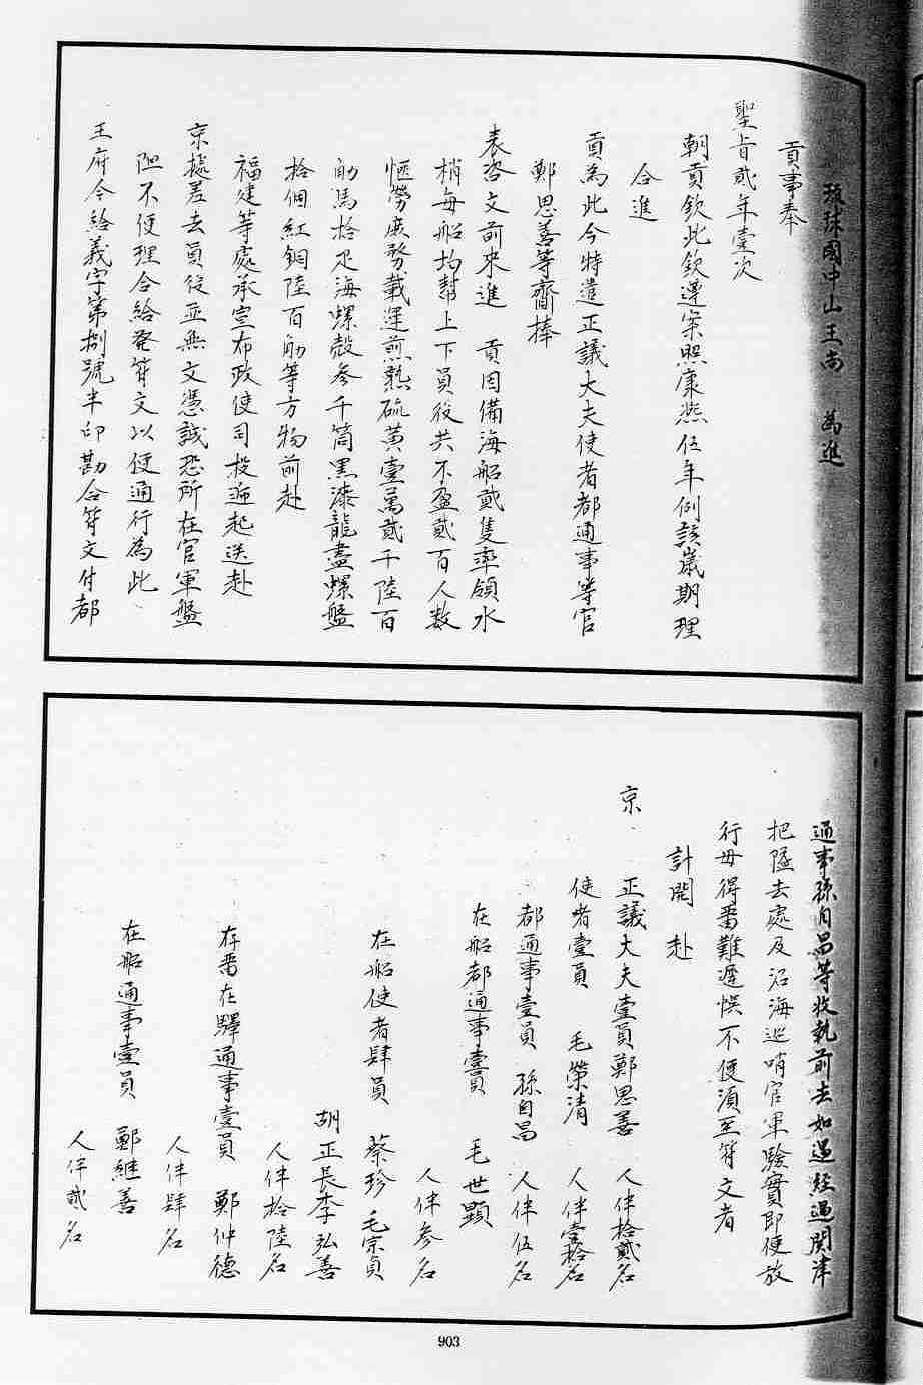 琉球國中山王尚　為進
貢事奉
聖旨貳年壹次
朝貢欽此欽遵案照康熙伍年例該歲期理
合進
貢為此今特遣正議大夫使者都通事等官
鄭思善等齎捧
表咨文前來進　貢因備海船貳隻率領水
梢每船均幫上下員役共不盈貳百人數
愜勞庶務載運煎熟硫黃壹萬貳千陸百
觔馬拾疋海螺殼參千筒黑漆龍畫螺盤
拾個紅銅陸百觔等方物前赴
福建等處承宣布政使司投遞起送赴
京據差去員役並無文憑誠恐所在官軍盤
阻不便理合給發符文以便通行為此
王府今給義字第捌號半印勘合符文付都
通事孫自昌等收執前去如遇經過関津
把隘去處及沿海巡哨官軍驗實即便放
行毋得畱難遲悮不便湏至符文者
計開　赴
京　正議大夫壹員鄭思善　人伴拾貳名
使者壹員　毛榮清　人伴壹拾名
都通事壹員　孫自昌　人伴伍名
在船都通事壹員　毛世顯
人伴參名
在船使者肆員　蔡珍　毛宗貞
胡正長李弘善
人伴拾陸名
存畱在驛通事壹員　鄭仲德
人伴肆名
在船通事壹員　鄭継善
人伴貳名
903